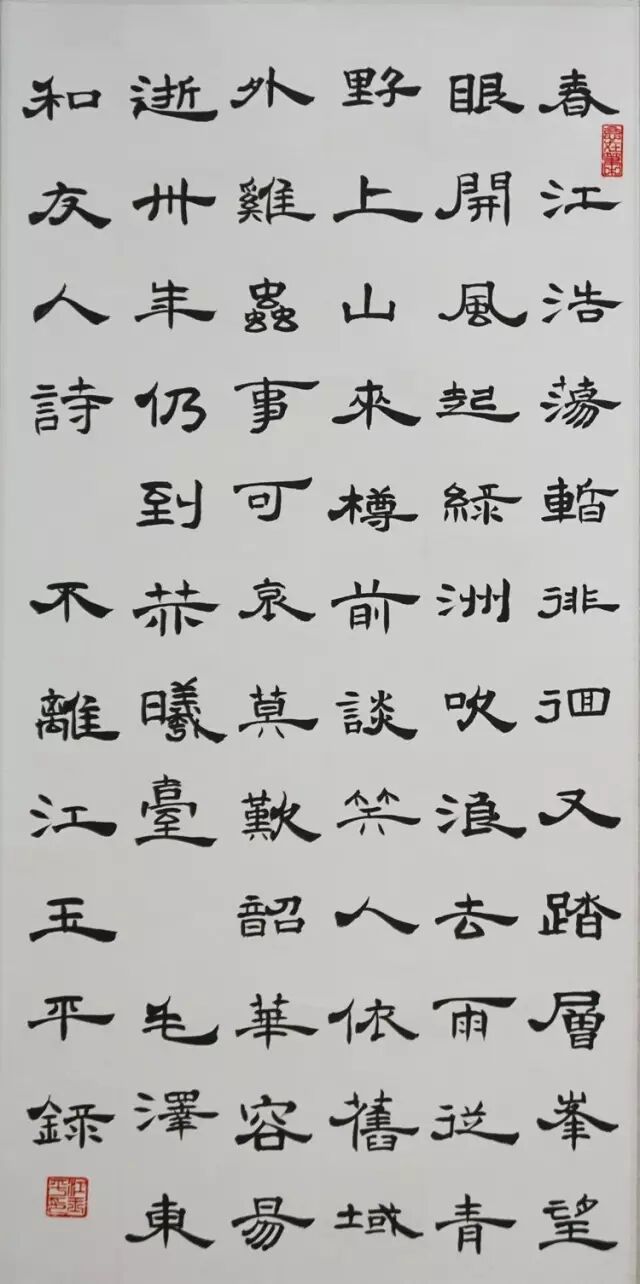 春江浩蕩暫徘徊又踏層峯望
眼開風起綠洲吹浪去雨從青
野上山來樽前談笑人依舊域
外雞蟲事可哀莫歎韶華容易
逝卅年仍到赤曦臺 毛澤東
和友人詩 不離江玉平錄
江玉平印